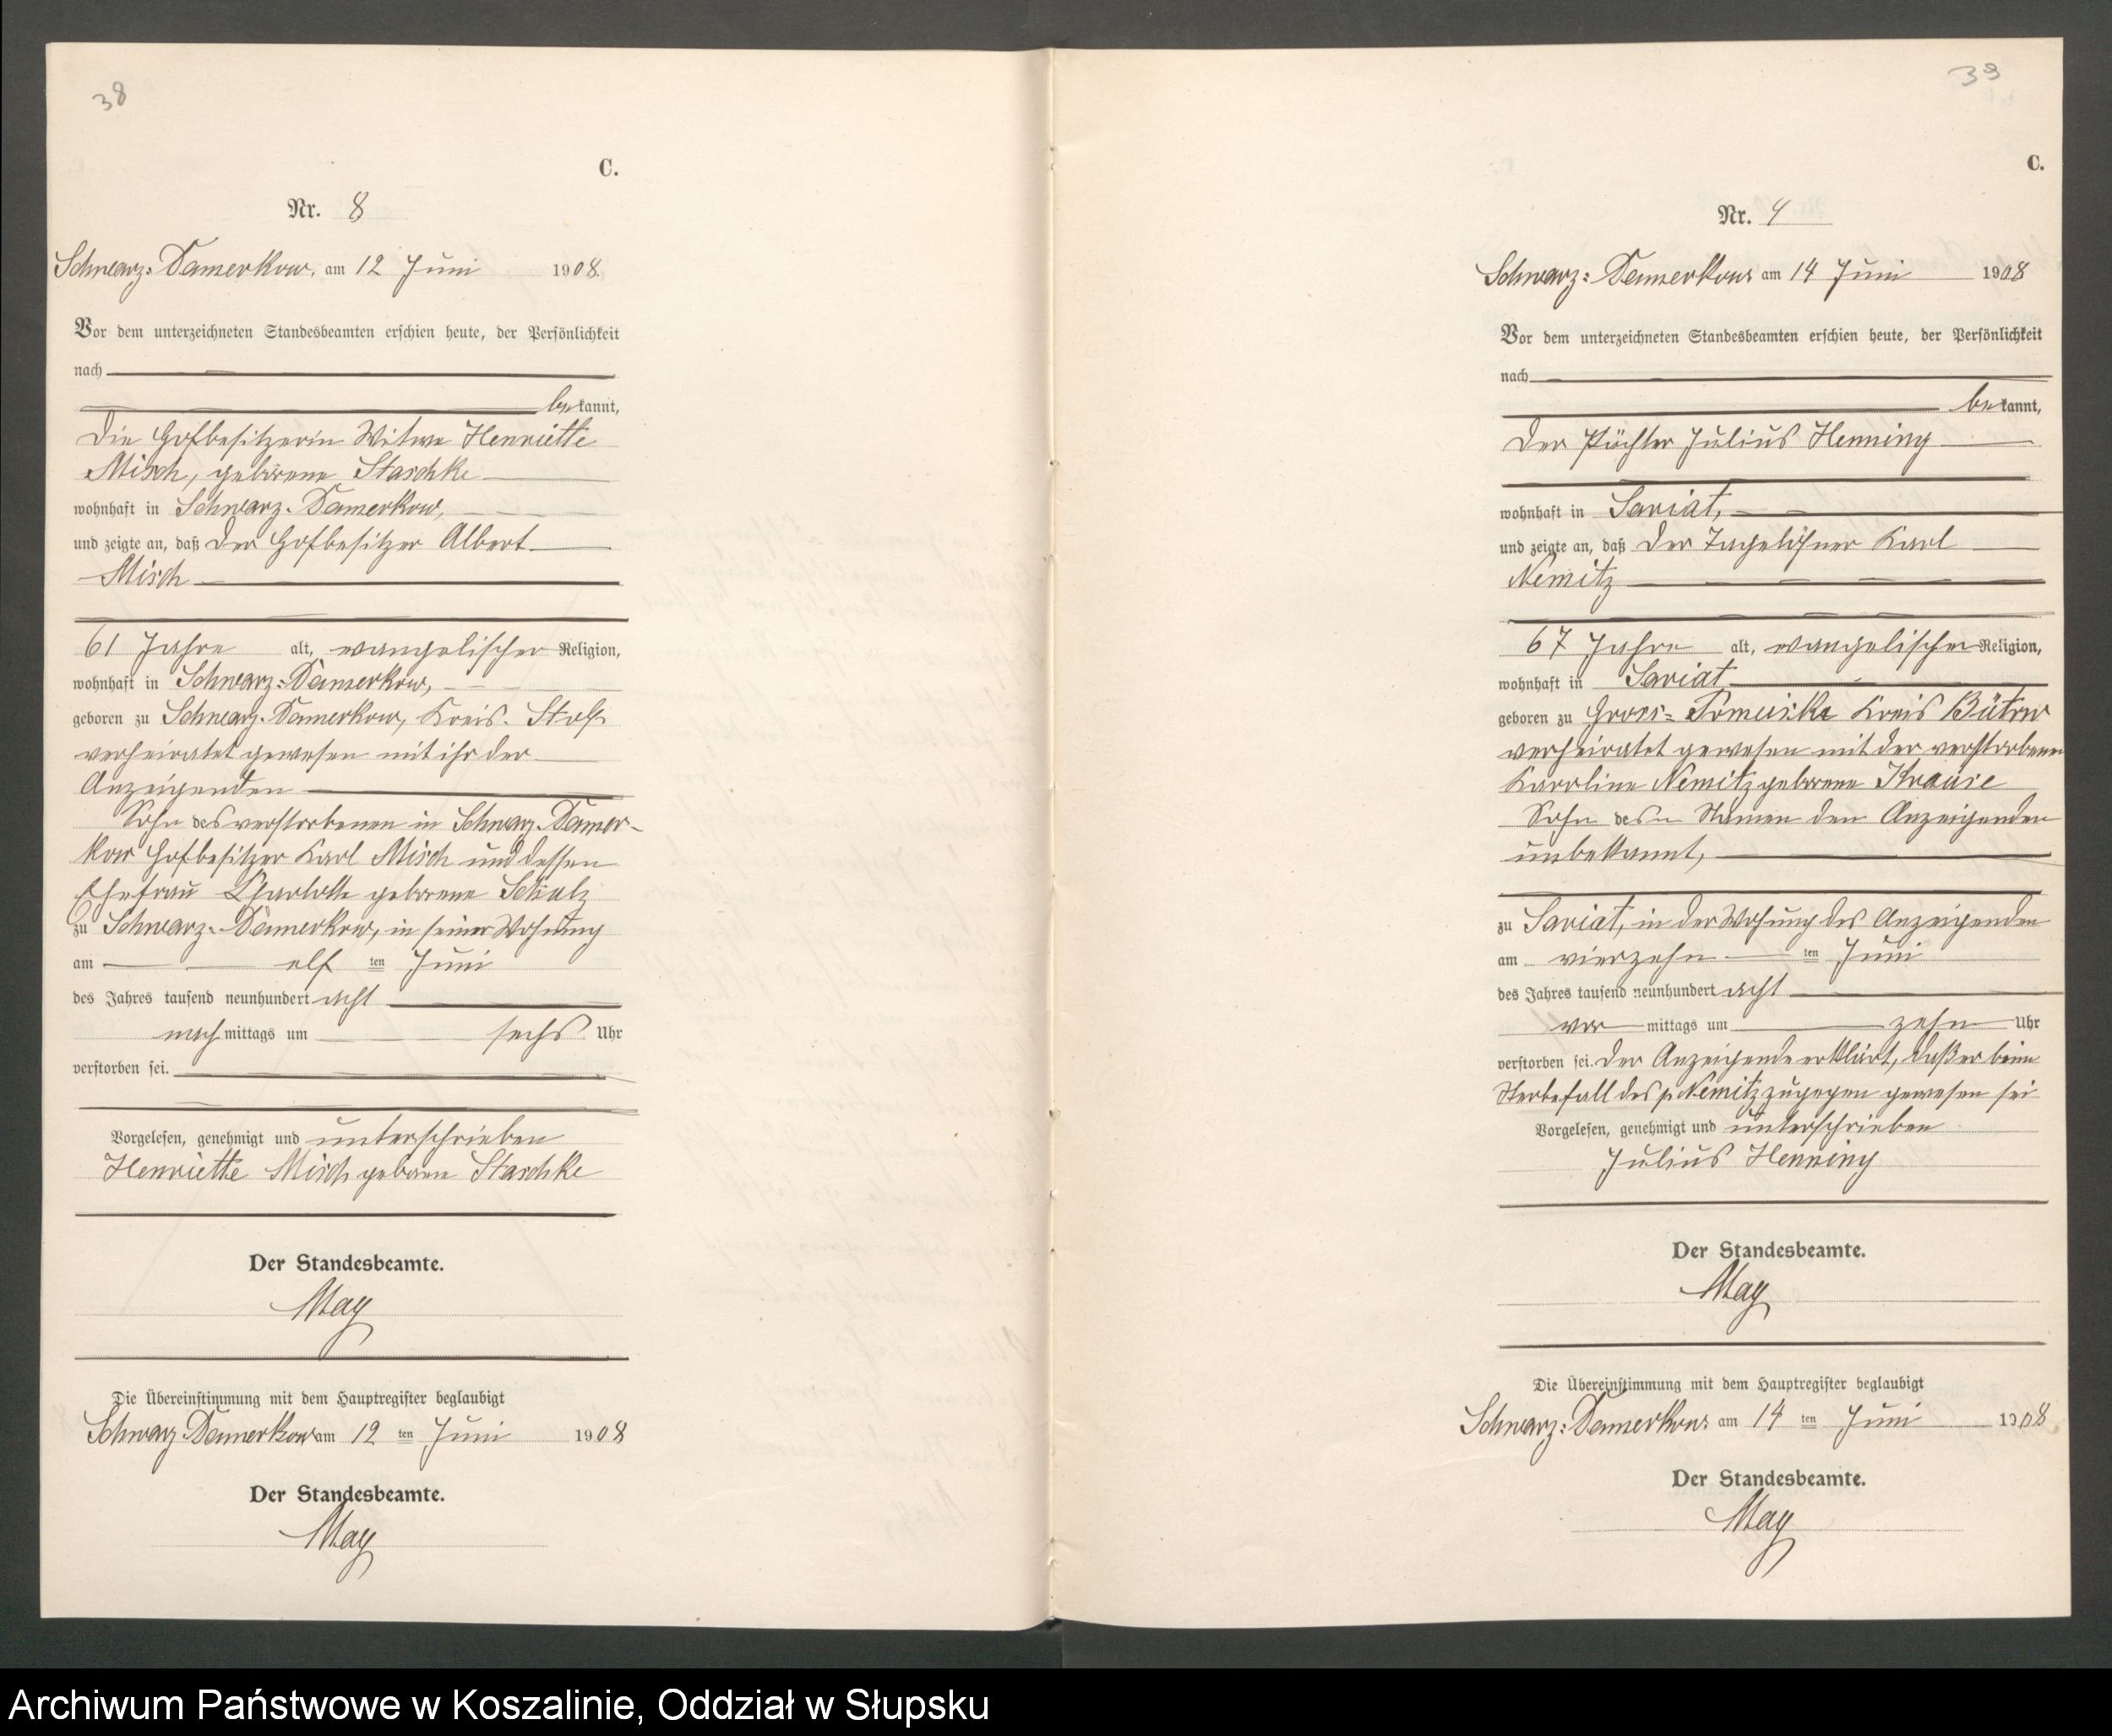 38
C.
Nr. 8
Schwarz-Damerkow, am 12 Juni 1908.
Vor dem unterzeichneten Standesbeamten erschien heute, der Persönlichkeit
nach
bekannt,
die Hofbesitzerin Witwe Henriette
Misch, geborene Staschke
wohnhaft in Schwarz-Damerkow,
und zeigte an, daß der Hofbesitzer Albert
Misch
61 Jahre alt, evangelischer Religion,
wohnhaft in Schwarz-Damerkow,
geboren zu Schwarz-Damerkow, Kreis Stolp
verheiratet gewesen mit ihr der
Anzeigenden
Sohn des verstorbenen in Schwarz-Damer-
kow Hofbesitzer Karl Misch und dessen
Ehefrau Charlotte geborene Schulz
zu Schwarz-Damerkow, in seiner Wohnung
am elf ten Juni
des Jahres tausend neunhundert acht
nach mittags um sechs Uhr
verstorben sei.
Vorgelesen, genehmigt und unterschrieben
Henriette Misch geborene Staschke
Der Standesbeamte.
May
Die Übereinstimmung mit dem Hauptregister beglaubigt
Schwarz Damerkow am 12 ten Juni 1908
Der Standesbeamte.
May
39
C.
Nr. 9
Schwarz-Damerkow am 14 Juni 1908
Vor dem unterzeichneten Standesbeamten erschien heute, der Persönlichkeit
nach
bekannt,
der Pächter Julius Henning
wohnhaft in Saviat,
und zeigte an, daß der Tagelöhner Karl
Nemitz
67 Jahre alt, evangelischer Religion,
wohnhaft in Saviat
geboren zu Gross- Kreis Bütow
verheiratet gewesen mit der verstorbenen
Karoline Nemitz geborene Krause
Sohn des Namen dem Anzeigenden
unbekannt,
zu Saviat, in der Wohnung des Anzeigenden
am vierzehn ten Juni
des Jahres tausend neunhundert acht
vor mittags um zehn Uhr
verstorben sei. Der Anzeigende erklärt, daß er beim
Sterbefall des p Nemitz zugegen gewesen sei
Vorgelesen, genehmigt und unterschrieben
Julius Henning
Der Standesbeamte.
May
Die Übereinstimmung mit dem Hauptregister beglaubigt
Schwarz-Damerkow am 14 ten Juni 1908
Der Standesbeamte.
May
Archiwum Państwowe w Koszalinie, Oddział w Słupsku